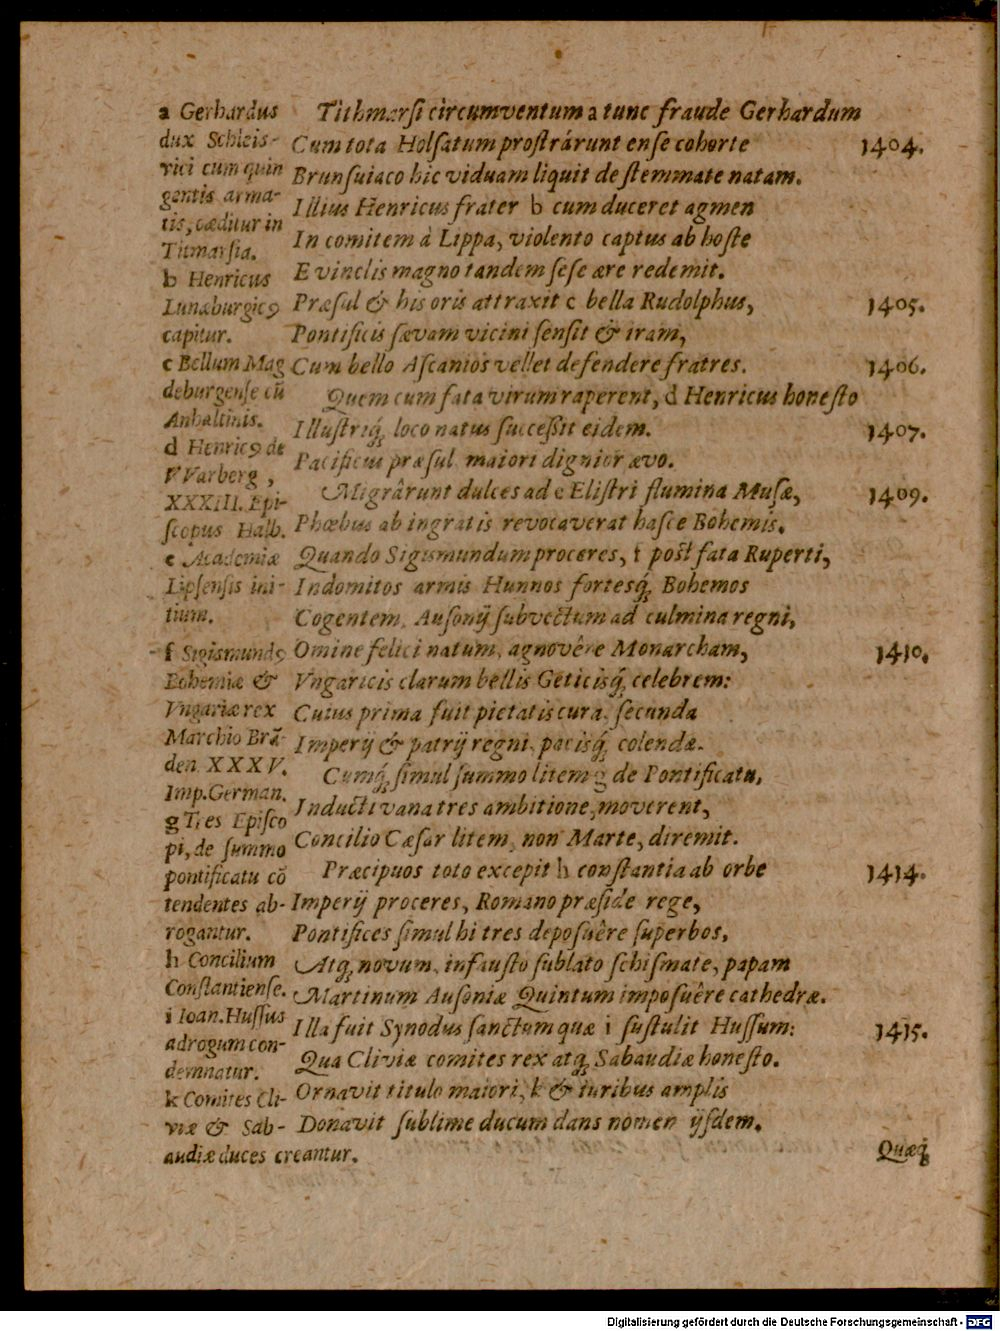 a Gerhardus
dux Schleis-
vici cum quin
gentis arma-
tis, cæditur in
Titmarsia.
b Henricus
Lunæburgicꝰ
capitur.
c Bellum Mag
deburgense cũ
Anhaltinis.
d Henricꝰ de
VVarberg,
XXXIII. Epi-
scopus Halb.
e Academiæ
Lipsensis ini-
tium.
f Sigismundꝰ
Bohemiæ &
Vngariæ rex
Marchio Brã-
den. XXXV.
Imp. German.
g Tres Episco
pi, de summo
pontificatu cõ
tendentes ab-
rogantur.
h Concilium
Constantiense.
i Ioan. Hussus
ad rogum con-
demnatur.
k Comites Cli-
viæ & Sab-
audiæ duces creantur.
Tithmarsi circumventum a tunc fraude Gerhardum
Cum tota Holsatum prostrárunt ense cohorte 1404.
Brunsuiaco hic viduam liquit de stemmate natam.
Illius Henricus frater b cum duceret agmen
In comitem à Lippa, violento captus ab hoste
E vinclis magno tandem sese ære redemit.
Præsul & his oris attraxit c bella Rudolphus, 1405.
Pontificis sævam vicini sensit & iram,
Cum bello Ascanios vellet defendere fratres. 1406.
Quem cum fata virum raperent, d Henricus honesto
Illustriq́; loco natus successit eidem. 1407.
Pacificus præsul maiori dignior ævo.
Migrârunt dulces ad e Elistri flumina Musæ, 1409.
Phœbus ab ingratis revocaverat hasce Bohemis.
Quando Sigismundum proceres, f post fata Ruperti,
Indomitos armis Hunnos fortesq́; Bohemos
Cogentem, Ausonij subvectum ad culmina regni,
Omine felici natum, agnovêre Monarcham, 1410.
Vngaricis clarum bellis Geticisq́; celebrem:
Cuius prima fuit pietatis cura, secunda
Imperij & patrij regni, pacisq́; colendæ.
Cumq́; simul summo litem g de Pontificatu,
Inducti vana tres ambitione, moverent,
Concilio Cæsar litem, non Marte, diremit.
Præcipuos toto excepit h constantia ab orbe 1414.
Imperij proceres, Romano præside rege,
Pontifices simul hi tres deposuêre superbos,
Atq́; novum, infausto sublato schismate, papam
Martinum Ausoniæ Quintum imposuêre cathedræ.
Illa fuit Synodus sanctum quæ i sustulit Hussum: 1415.
Qua Cliviæ comites rex atq́; Sabaudiæ honesto.
Ornavit titulo maiori, k & iuribus amplis
Donavit sublime ducum dans nomen ijsdem.
Quæq́;
Digitalisierung gefördert durch die Deutsche Forschungsgemeinschaft - DFG